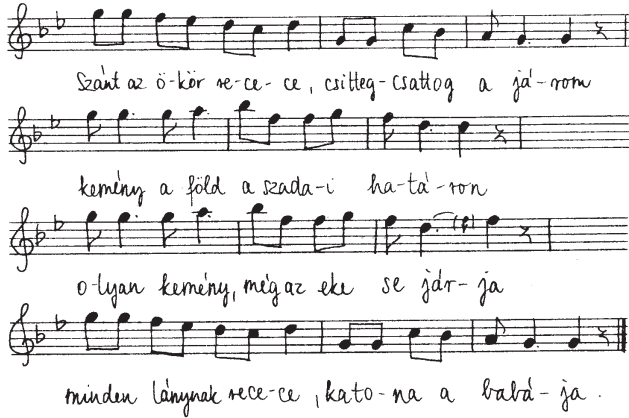 Szánt az ö-kör re-ce-ce, csitteg-csattog a já-rom
kemény a föld a szada-i ha-tá-ron
o-lyan kemény, még az eke se jár-ja
minden lánynak rece-ce, kato-na a babá-ja.